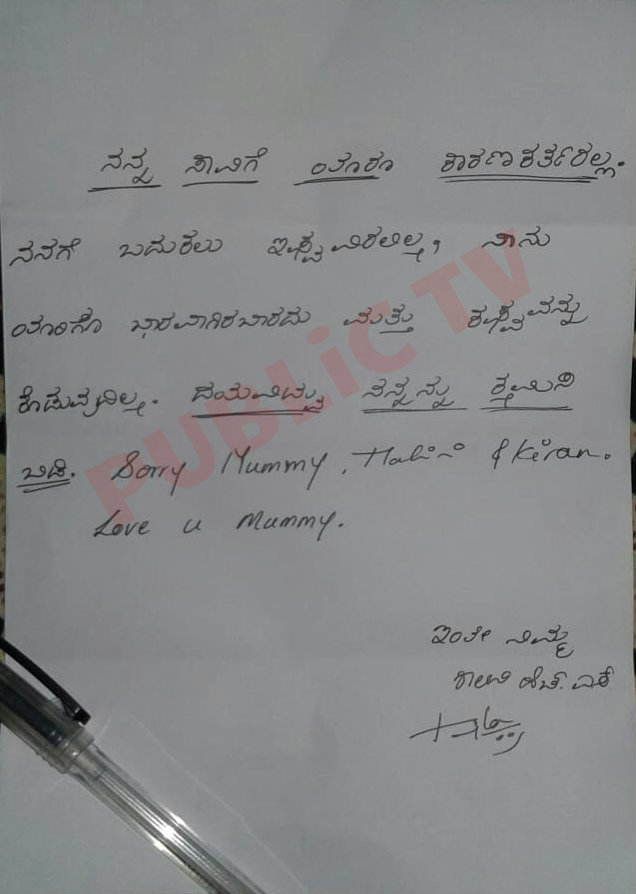 ನನ್ನ ಸಾವಿಗೆ ಯಾರೂ ಕಾರಣಕರ್ತರಲ್ಲ.
ನನಗೆ ಬದುಕಲು ಇಷ್ಟವಿರಲಿಲ್ಲ, ನಾನು
ಯಾರಿಗೂ ಭಾರವಾಗಿರಬಾರದು ಮತ್ತು ಕಷ್ಟವನ್ನು
ಕೊಡುವುದಿಲ್ಲ. ದಯವಿಟ್ಟು ನನ್ನನ್ನು ಕ್ಷಮಿಸಿ
ಬಿಡಿ. Sorry Mummy, & Kiran.
Love u Mummy.
ಇಂತೀ ನಿಮ್ಮ
ಹೆಚ್. ಎಸ್
PUBLiC TV